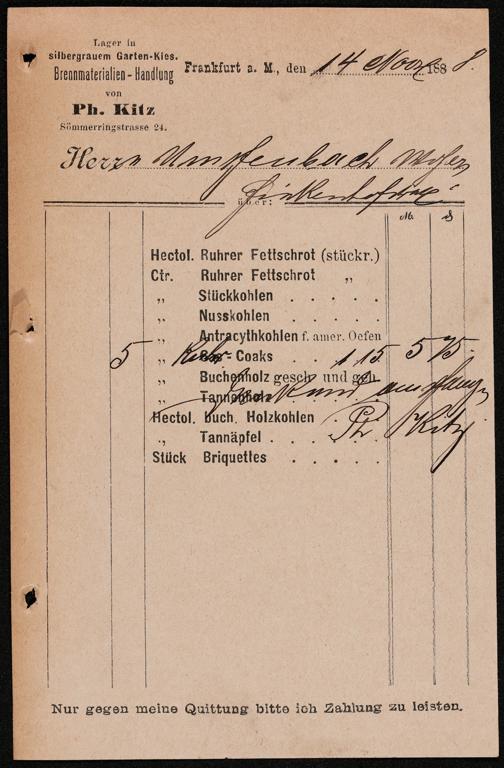 Lager in
silbergrauem Garten-Kies.
Brennmaterialien-Handlung
von
Ph. Kitz
Sömmerringstrasse 24.
Frankfurt a. M., den 14 Nov 1888.
Herrn Umpfenbach
über:
M. S
Hectol. Ruhrer Fettschrot (stückr.)
Ctr. Ruhrer Fettschrot „
„ Stückkohlen . . . . .
„ Nusskohlen . . . . .
„ Antracythkohlen f. amer. Oefen
5 „ -Coaks . . 1 15 5 75.
„ Buchenholz gesch. und geh.
„ Tannenholz
dankend empfangen
Hectol. buch. Holzkohlen
„ Tannäpfel . . . . Ph Kitz
Stück Briquettes . . . . .
Nur gegen meine Quittung bitte ich Zahlung zu leisten.